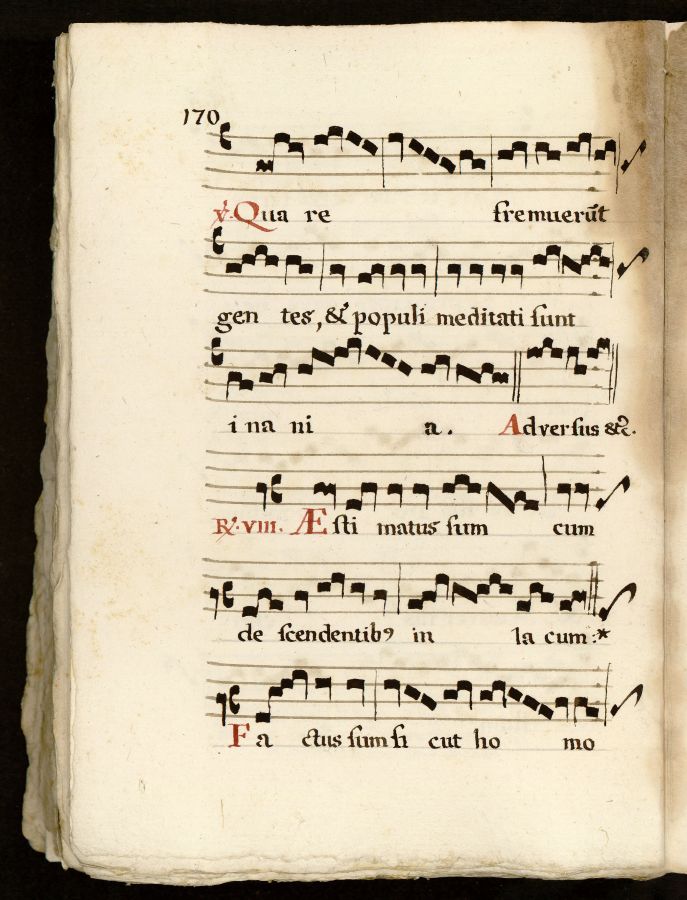 170
℣. Qua re fremuerũt
gen tes, & populi meditati sunt
i na ni a. Adversus &c.
℟. VIII. Æsti matus sum cum
de scendentibꝰ in la cum:*
Fa ctus sum si cut ho mo